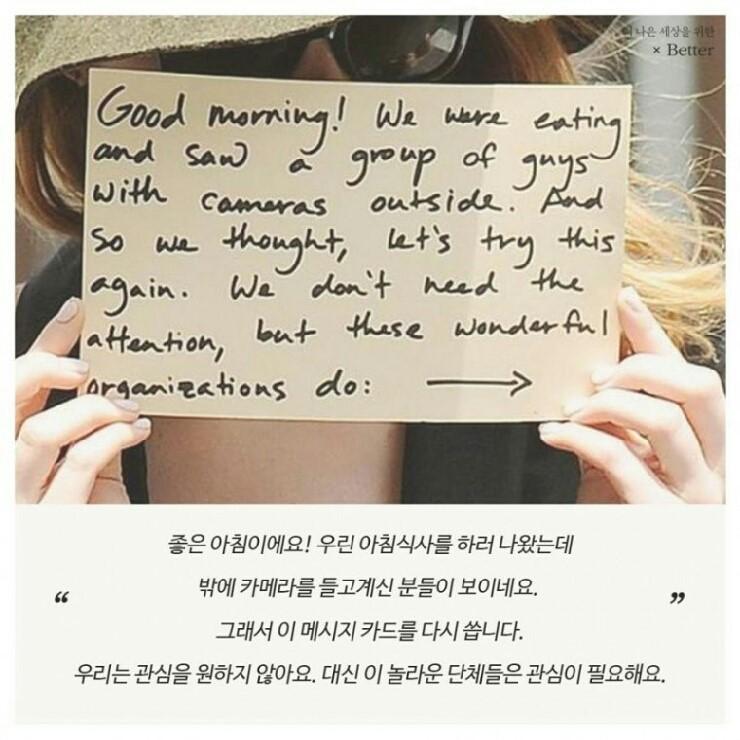 더 나은 세상을 위한
× Better
Good morning! We were eating
and saw a group of guys
with cameras outside. And
so we thought, let's try this
again. We don't need the
attention, but these wonderful
organizations do: →
좋은 아침이에요! 우린 아침식사를 하러 나왔는데
“ 밖에 카메라를 들고계신 분들이 보이네요. ”
그래서 이 메시지 카드를 다시 씁니다.
우리는 관심을 원하지 않아요. 대신 이 놀라운 단체들은 관심이 필요해요.